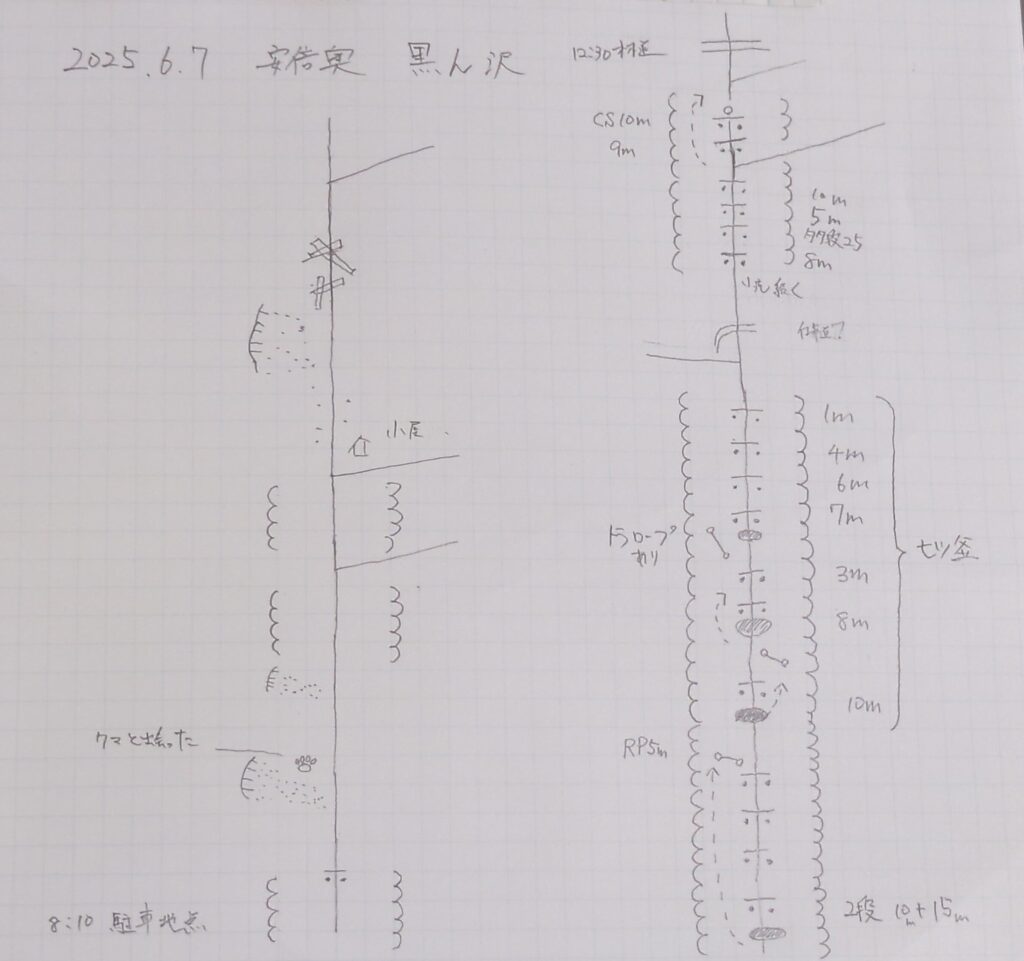 2025.6.7 安倍奥 黒ん沢
小屋
クマと出会った
8:10 駐車地点
12:30 林道
CS10m
9m
10m
5m
多段25
8m
小滝続く
作道?
1m
4m
6m
7m
トラロープ
あり
3m
8m
七ツ釜
10m
RP5m
2段 10m+15m